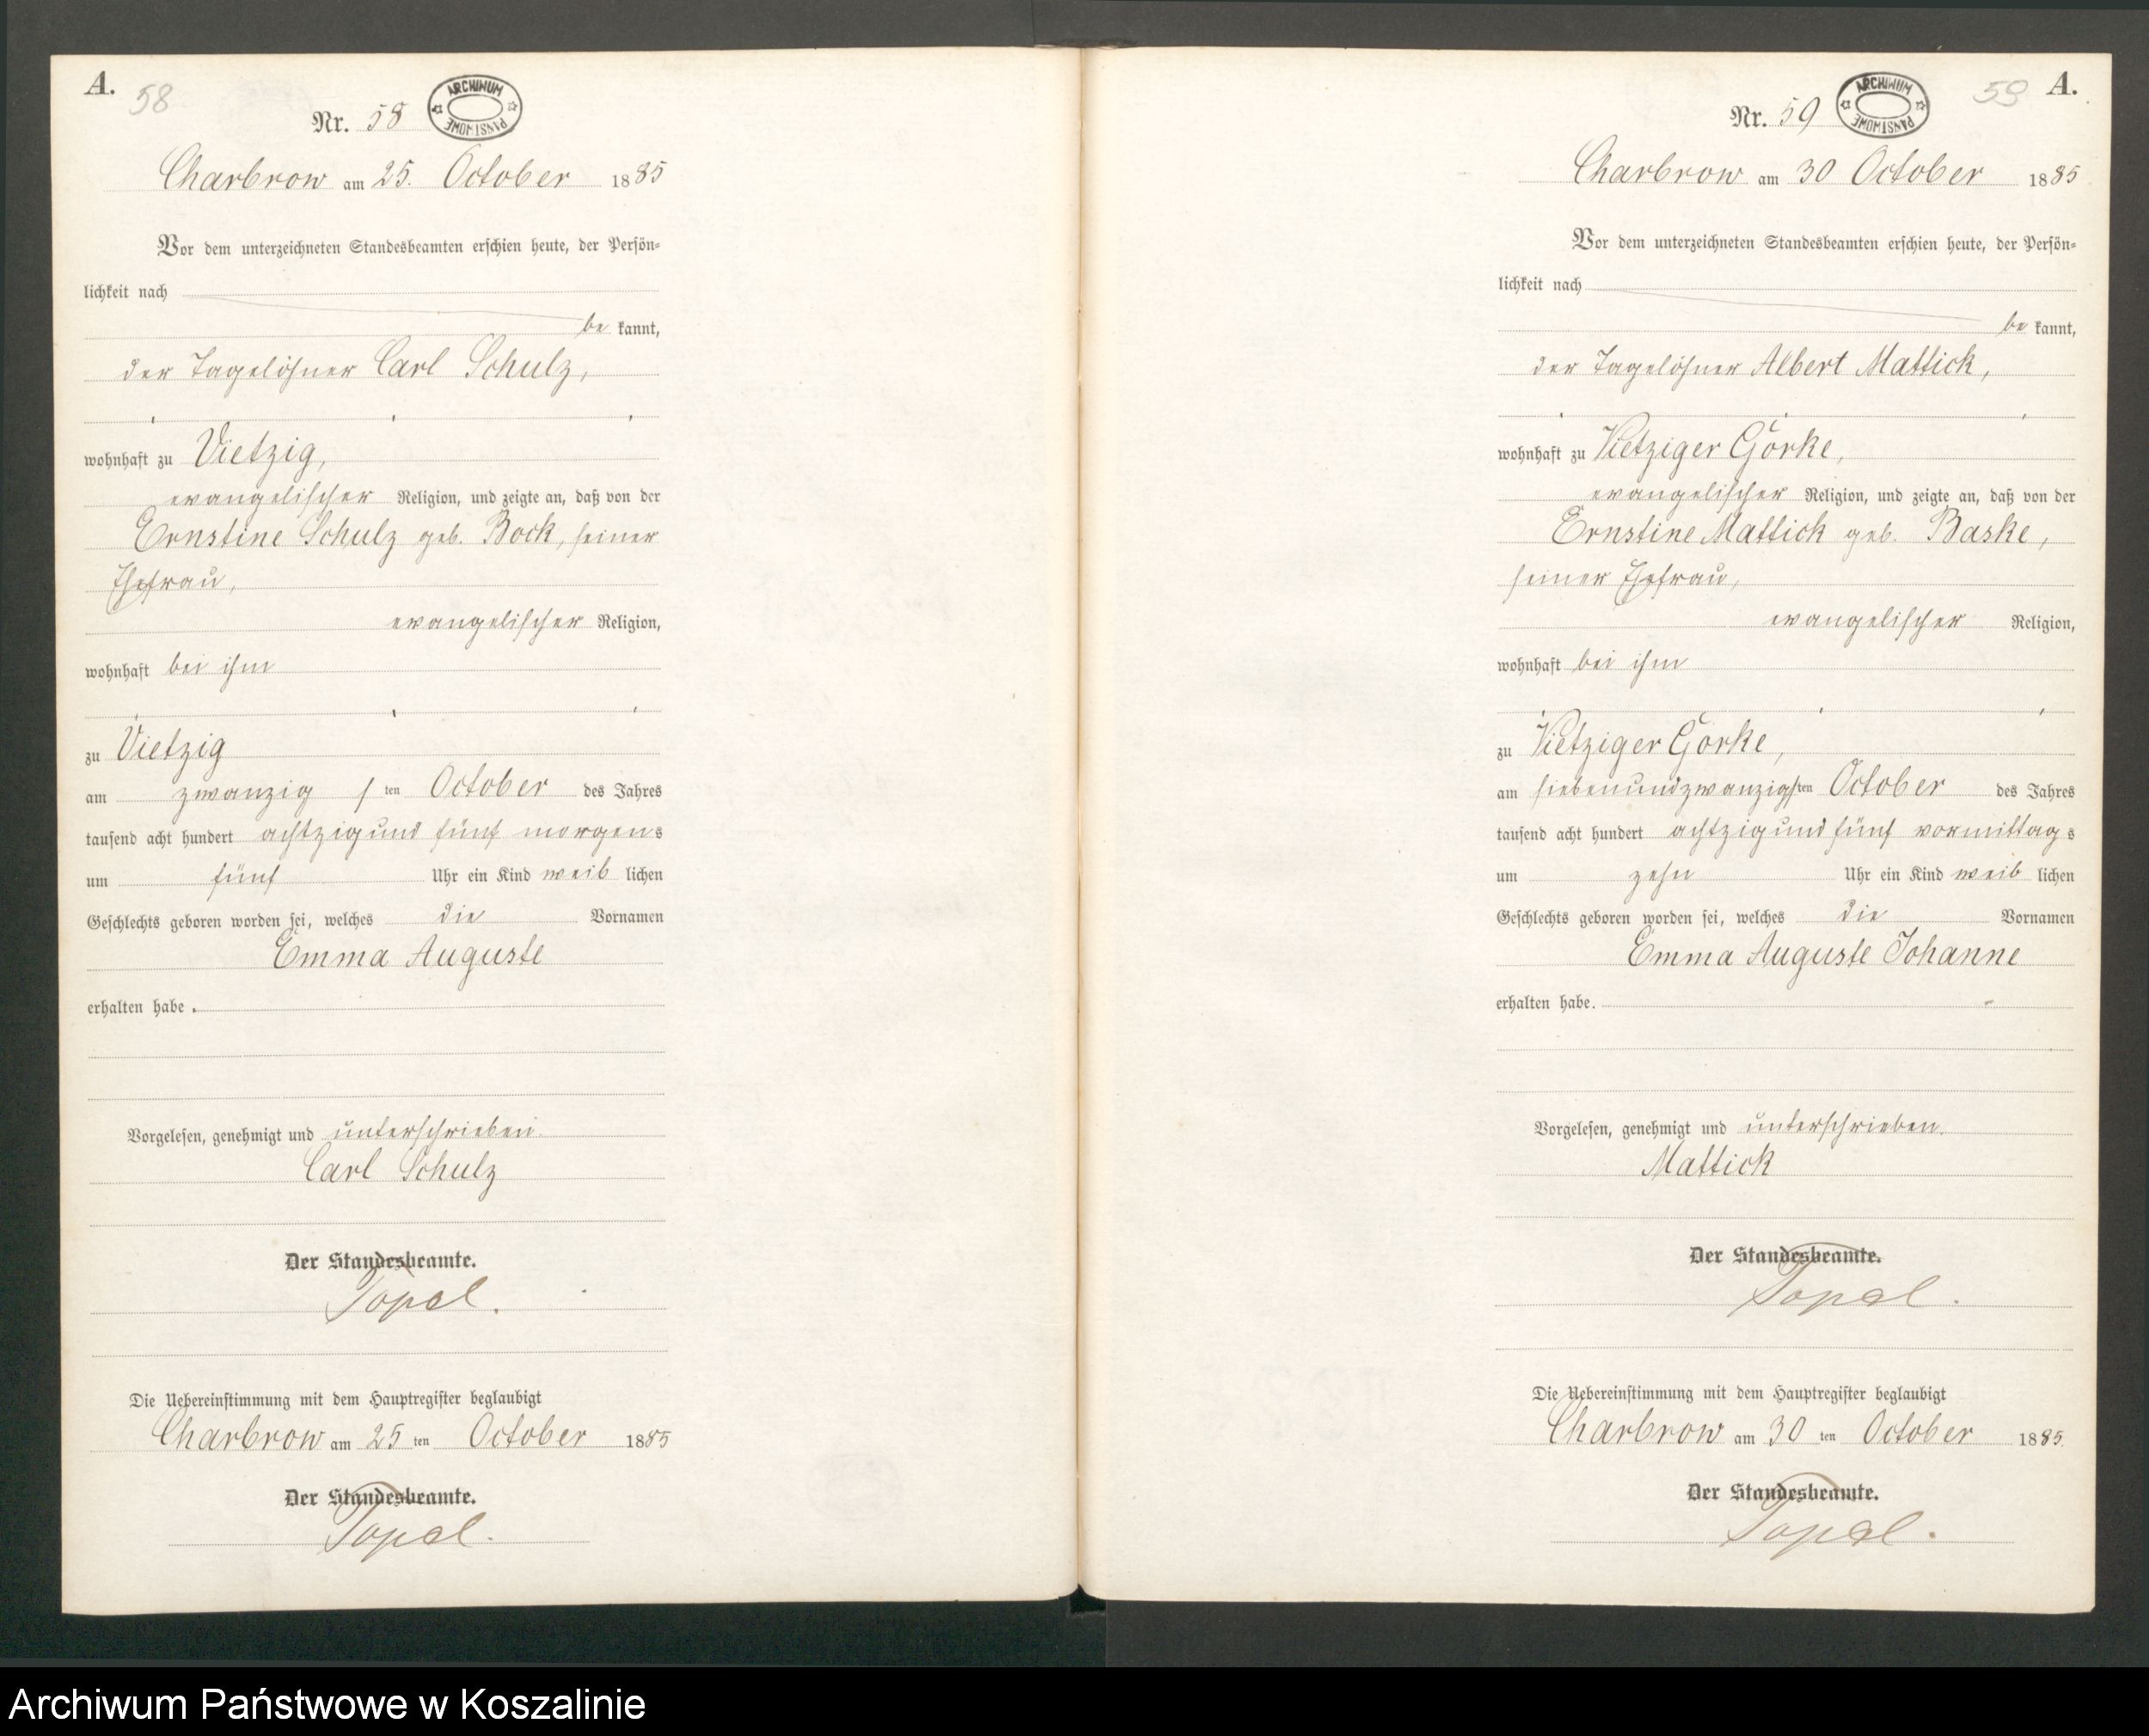 A.
58
Nr. 58
ARCHIWUM
PAŃSTWOWE
Charbrow am 25. October 1885
Vor dem unterzeichneten Standesbeamten erschien heute, der Persön-
lichkeit nach
be kannt,
der Tagelöhner Carl Schulz,
wohnhaft zu Vietzig,
evangelischer Religion, und zeigte an, daß von der
Ernstine Schulz geb. Bock, seiner
Ehefrau,
evangelischer Religion,
wohnhaft bei ihm
zu Vietzig
am zwanzig sten October des Jahres
tausend acht hundert achtzig und fünf morgens
um fünf Uhr ein Kind weib lichen
Geschlechts geboren worden sei, welches die Vornamen
Emma Auguste
erhalten habe.
Vorgelesen, genehmigt und unterschrieben.
Carl Schulz
Der Standesbeamte.
Topel.
Die Uebereinstimmung mit dem Hauptregister beglaubigt
Charbrow am 25 ten October 1885
Der Standesbeamte.
Topel.
59 A.
Nr. 59
ARCHIWUM
PAŃSTWOWE
Charbrow am 30 October 1885
Vor dem unterzeichneten Standesbeamten erschien heute, der Persön-
lichkeit nach
be kannt,
der Tagelöhner Albert Mattick,
wohnhaft zu Vietziger Görke,
evangelischer Religion, und zeigte an, daß von der
Ernstine Mattick geb. Baske,
seiner Ehefrau,
evangelischer Religion,
wohnhaft bei ihm
zu Vietziger Görke,
am siebenundzwanzigsten October des Jahres
tausend acht hundert achtzig und fünf vormittags
um zehn Uhr ein Kind weib lichen
Geschlechts geboren worden sei, welches die Vornamen
Emma Auguste Johanne
erhalten habe.
Vorgelesen, genehmigt und unterschrieben.
Mattick
Der Standesbeamte.
Topel.
Die Uebereinstimmung mit dem Hauptregister beglaubigt
Charbrow am 30 ten October 1885.
Der Standesbeamte.
Topel.
Archiwum Państwowe w Koszalinie